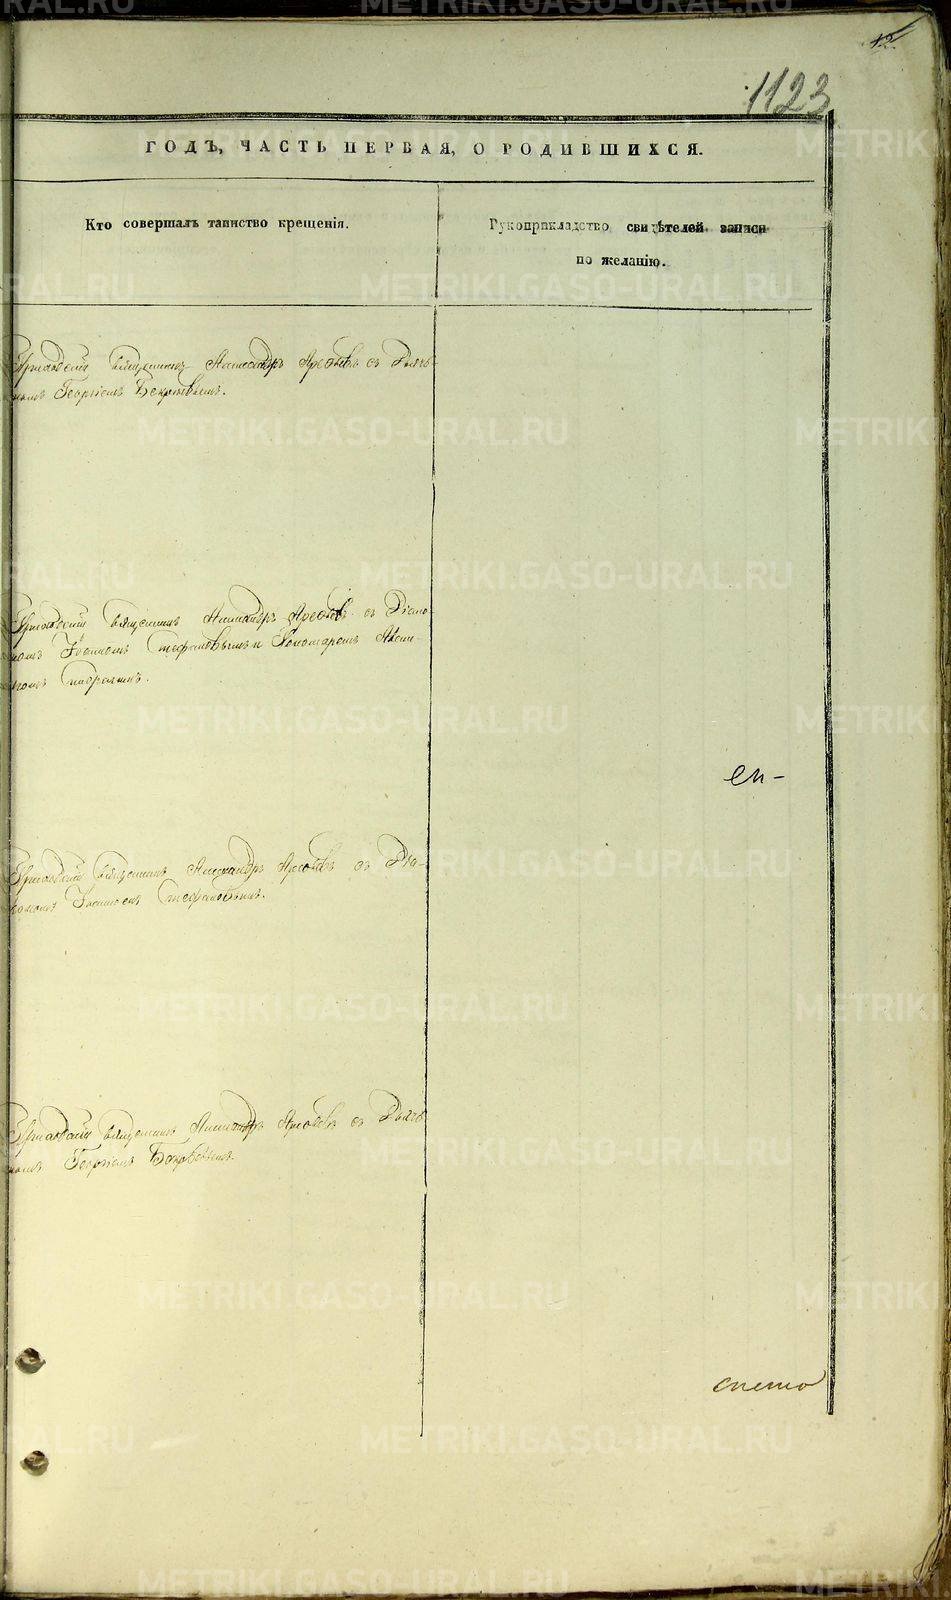 12.
1123
ГОДЪ, ЧАСТЬ ПЕРВАЯ, О РОДИВШИХСЯ.
Кто совершалъ таинство крещенія.
Рукоприкладство свидѣтелей записи
по желанію.
Приходскій священникъ Александръ Арефьевъ съ Дьяч-
комъ Георгіемъ
Приходскій священникъ Александръ Арефьевъ съ Діако-
номъ Іоанномъ Стефановымъ и Пономаремъ
Приходскій священникъ Александръ Арефьевъ съ Діа-
кономъ Іоанномъ Стефановымъ.
Приходскій священникъ Александръ Арефьевъ съ Дьяч-
комъ Георгіемъ
METRIKI.GASO-URAL.RU